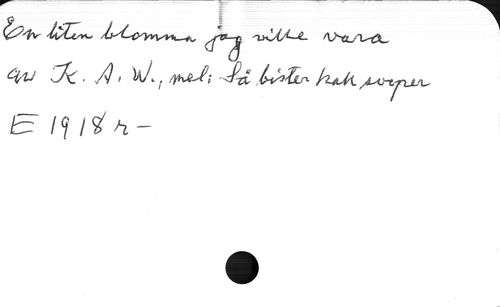 En liten blomma jag ville vara
av K. A. W., mel: Så bister kall sveper
E 1918 r-